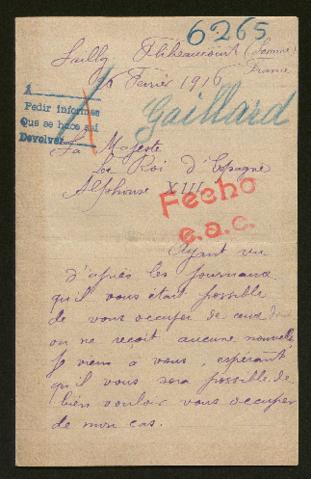 6265
Sailly Flibeaucourt (Somme)
France
26 Fevrier 1916
A
Pedir informes
Que se hace así
Devolver
Gaillard
Sa Majesté
Le Roi d'Espagne
Alphonse XIII
Fecho
e.a.c.
Ayant vu
d'après les journaux
qu'il vous était possible
de vous occuper de ceux dont
on ne reçoit aucune nouvelle
Je viens a vous, espérant
qu'il vous sera possible de
bien vouloir vous occuper
de mon cas.